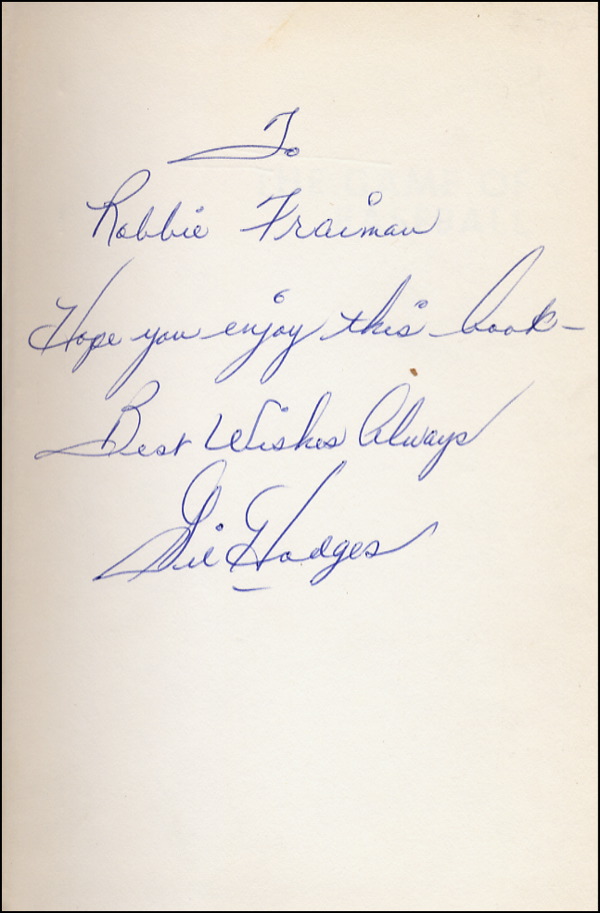 To
Robbie Fraiman
Hope you enjoy this book-
Best Wishes Always
Gil Hodges